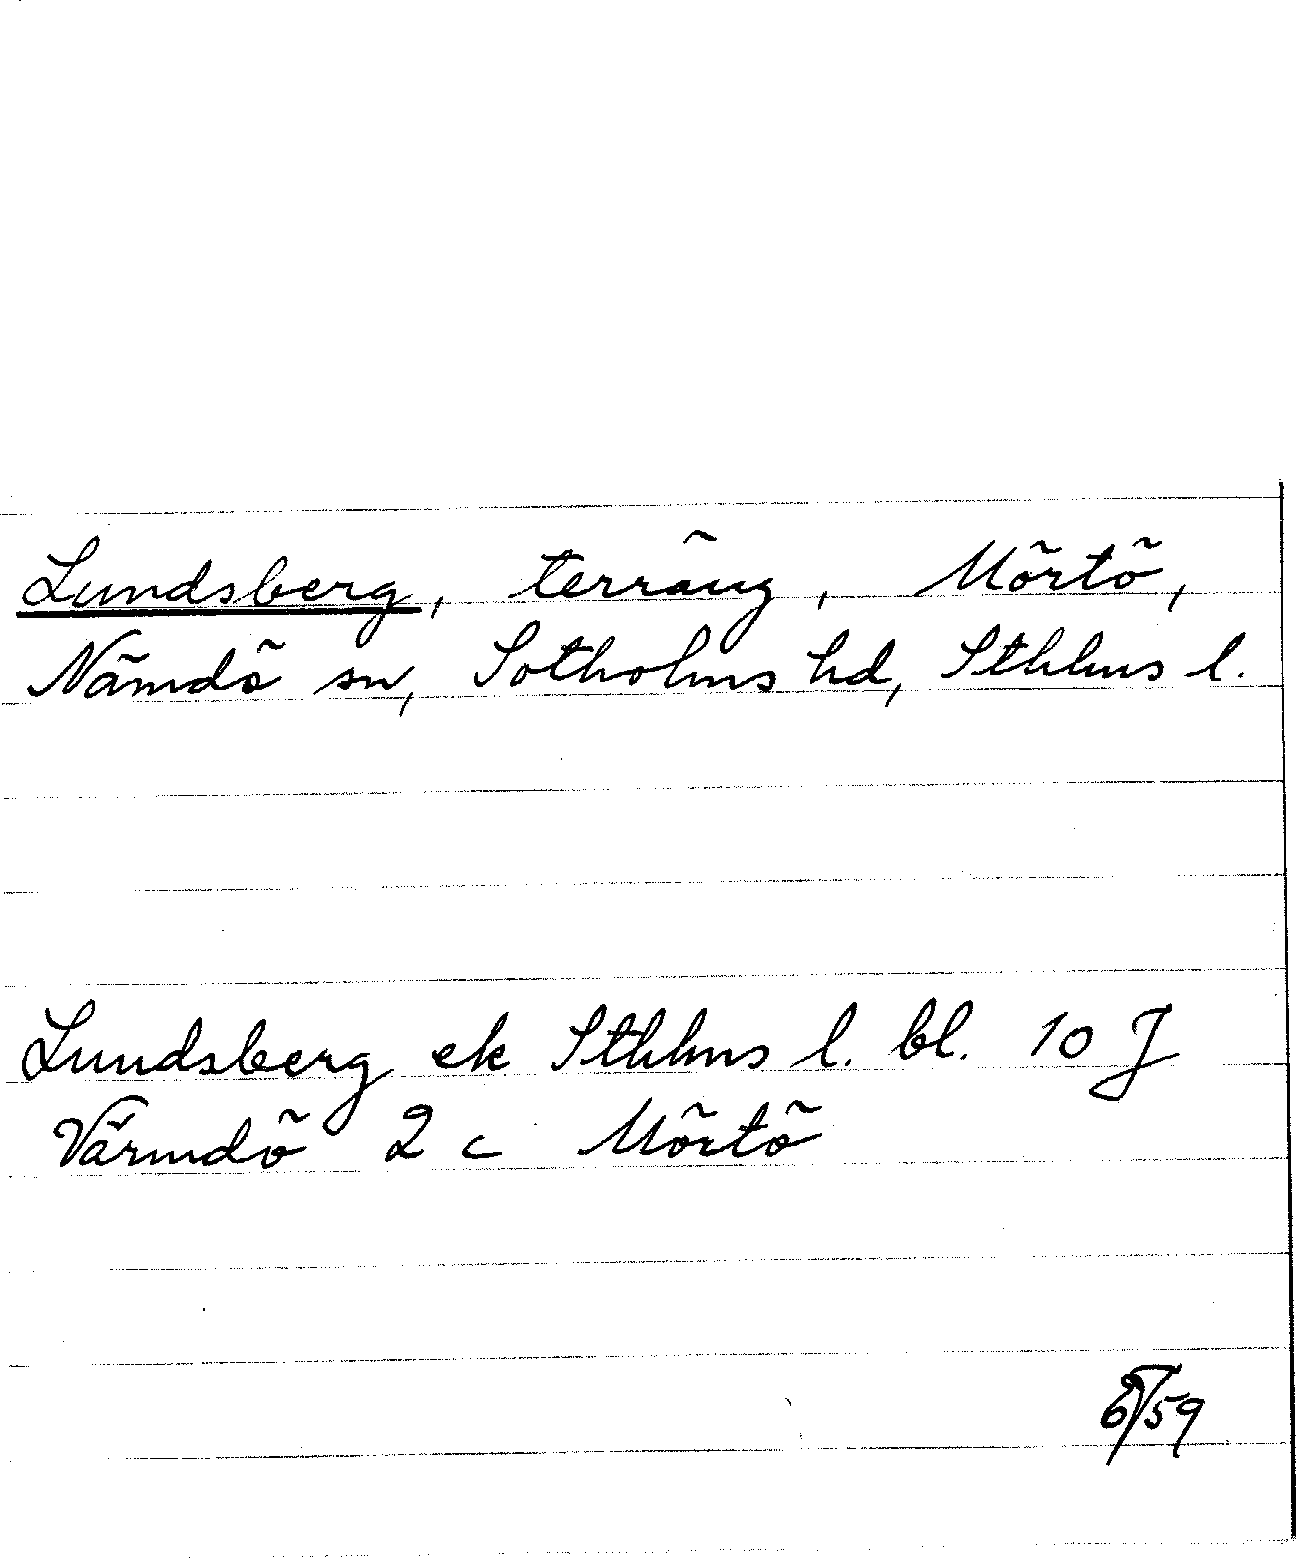 Lundsberg, terräng, Mörtö,
Nämdö sn, Sotholms hd, Sthlms l.
Lundsberg ek Sthlms l. bl. 10 J
Värmdö 2 c Mörtö